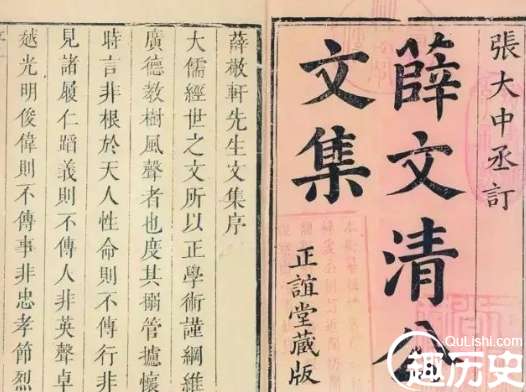 張大中丞訂
薛文清公
文集
正誼堂藏版
薛敬軒先生文集序
大儒經世之文所以正學術謹綱維
廣德教樹風聲者也度其搦管攄懷
時言非根於天人性命則不傳行非
見諸履仁蹈義則不傳人非英聲卓
越光明俊偉則不傳事非忠孝節烈
QuLishi.com
趣历史